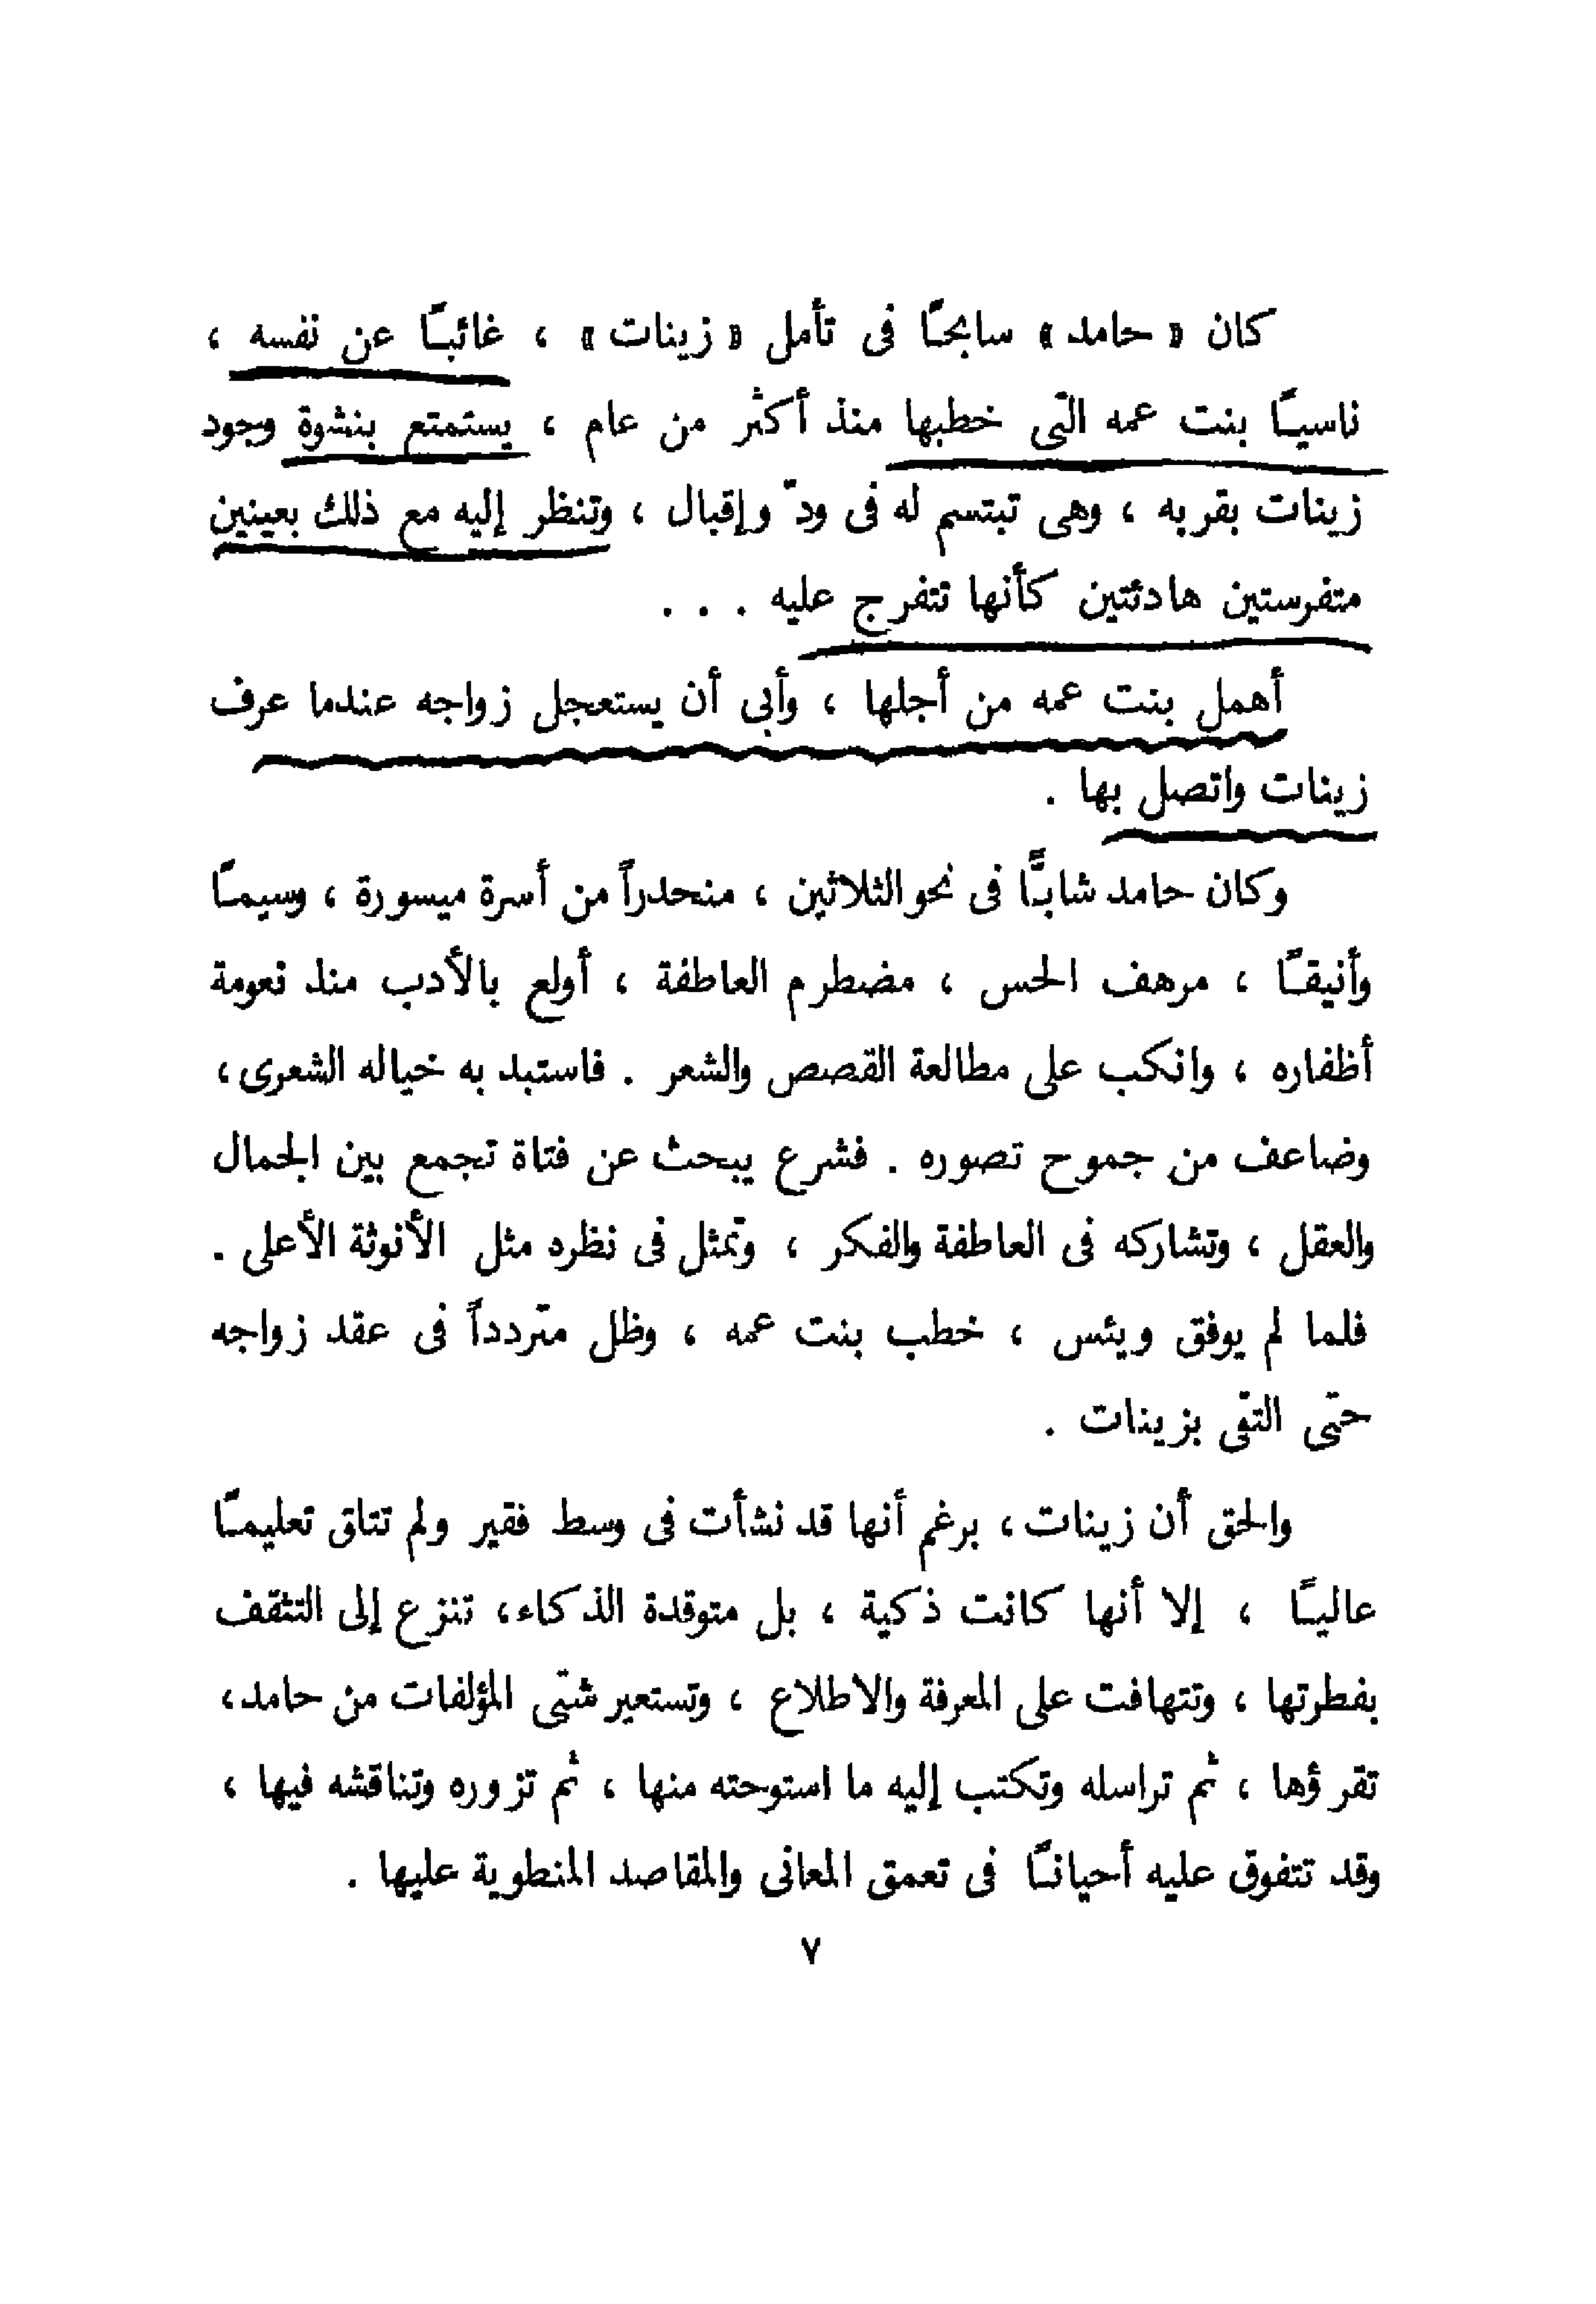 كان « حامد » سابحًا فى تأمل « زينات » ، غائبًا عن نفسه ،
ناسيًا بنت عمه التى خطبها منذ أكثر من عام ، يستمتع بنشوة وجود
زينات بقربه ، وهى تبتسم له فى ودّ وإقبال ، وتنظر إليه مع ذلك بعينين
متفرستين هادئتين كأنها تتفرج عليه . . .
أهمل بنت عمه من أجلها ، وأبى أن يستعجل زواجه عندما عرف
زينات واتصل بها .
وكان حامد شابًّا فى نحو الثلاثين ، منحدراً من أسرة ميسورة ، وسيمًا
وأنيقًا ، مرهف الحس ، مضطرم العاطفة ، أولع بالأدب منذ نعومة
أظفاره ، وانكب على مطالعة القصص والشعر . فاستبد به خياله الشعرى ،
وضاعف من جموح تصوره . فشرع يبحث عن فتاة تجمع بين الجمال
والعقل ، وتشاركه فى العاطفة والفكر ، وتمثل فى نظره مثل الأنوثة الأعلى .
فلما لم يوفق ويئس ، خطب بنت عمه ، وظل متردداً فى عقد زواجه
حتى التقى بزينات .
والحق أن زينات ، برغم أنها قد نشأت فى وسط فقير ولم تتلق تعليمًا
عاليًا ، إلا أنها كانت ذكية ، بل متوقدة الذكاء ، تنزع إلى التثقف
بفطرتها ، وتتهافت على المعرفة والاطلاع ، وتستعير شتى المؤلفات من حامد ،
تقرؤها ، ثم تراسله وتكتب إليه ما استوحته منها ، ثم تزوره وتناقشه فيها ،
وقد تتفوق عليه أحيانًا فى تعمق المعانى والمقاصد المنطوية عليها .
٧